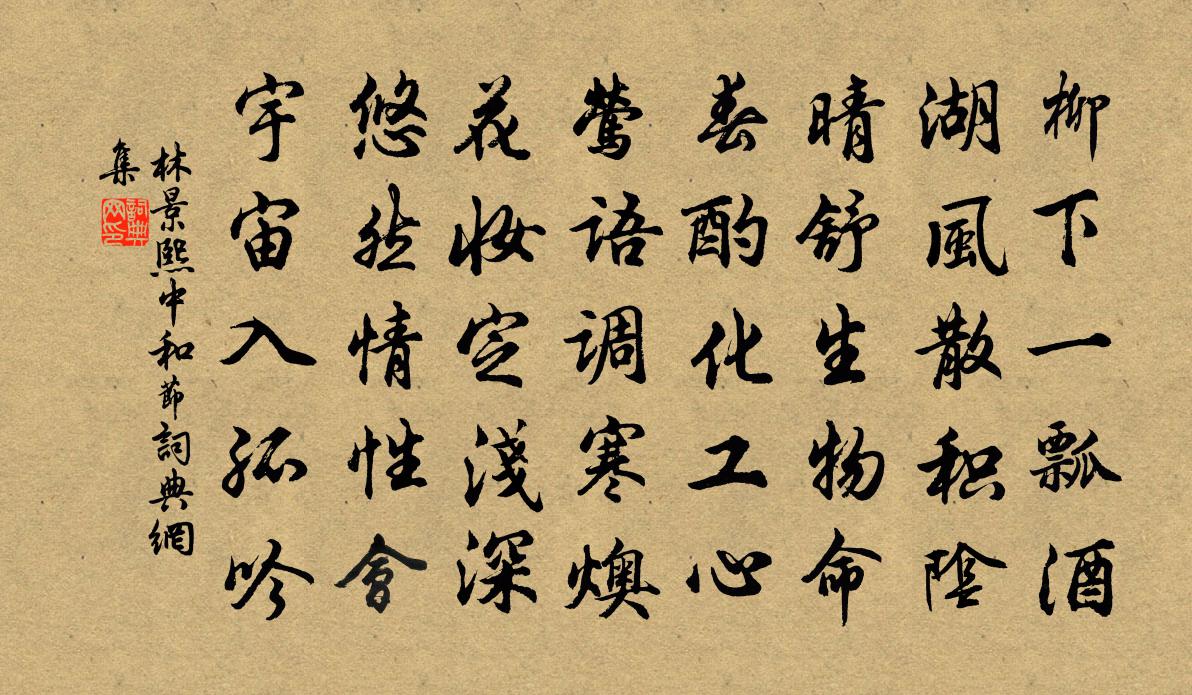 柳下一瓢酒
湖風散积陰
晴舒生物命
春酌化工心
莺語调寒燠
花妝定淺深
悠然情性會
宇宙入孤吟
林景熙中和節詞典網
集
詞典网印